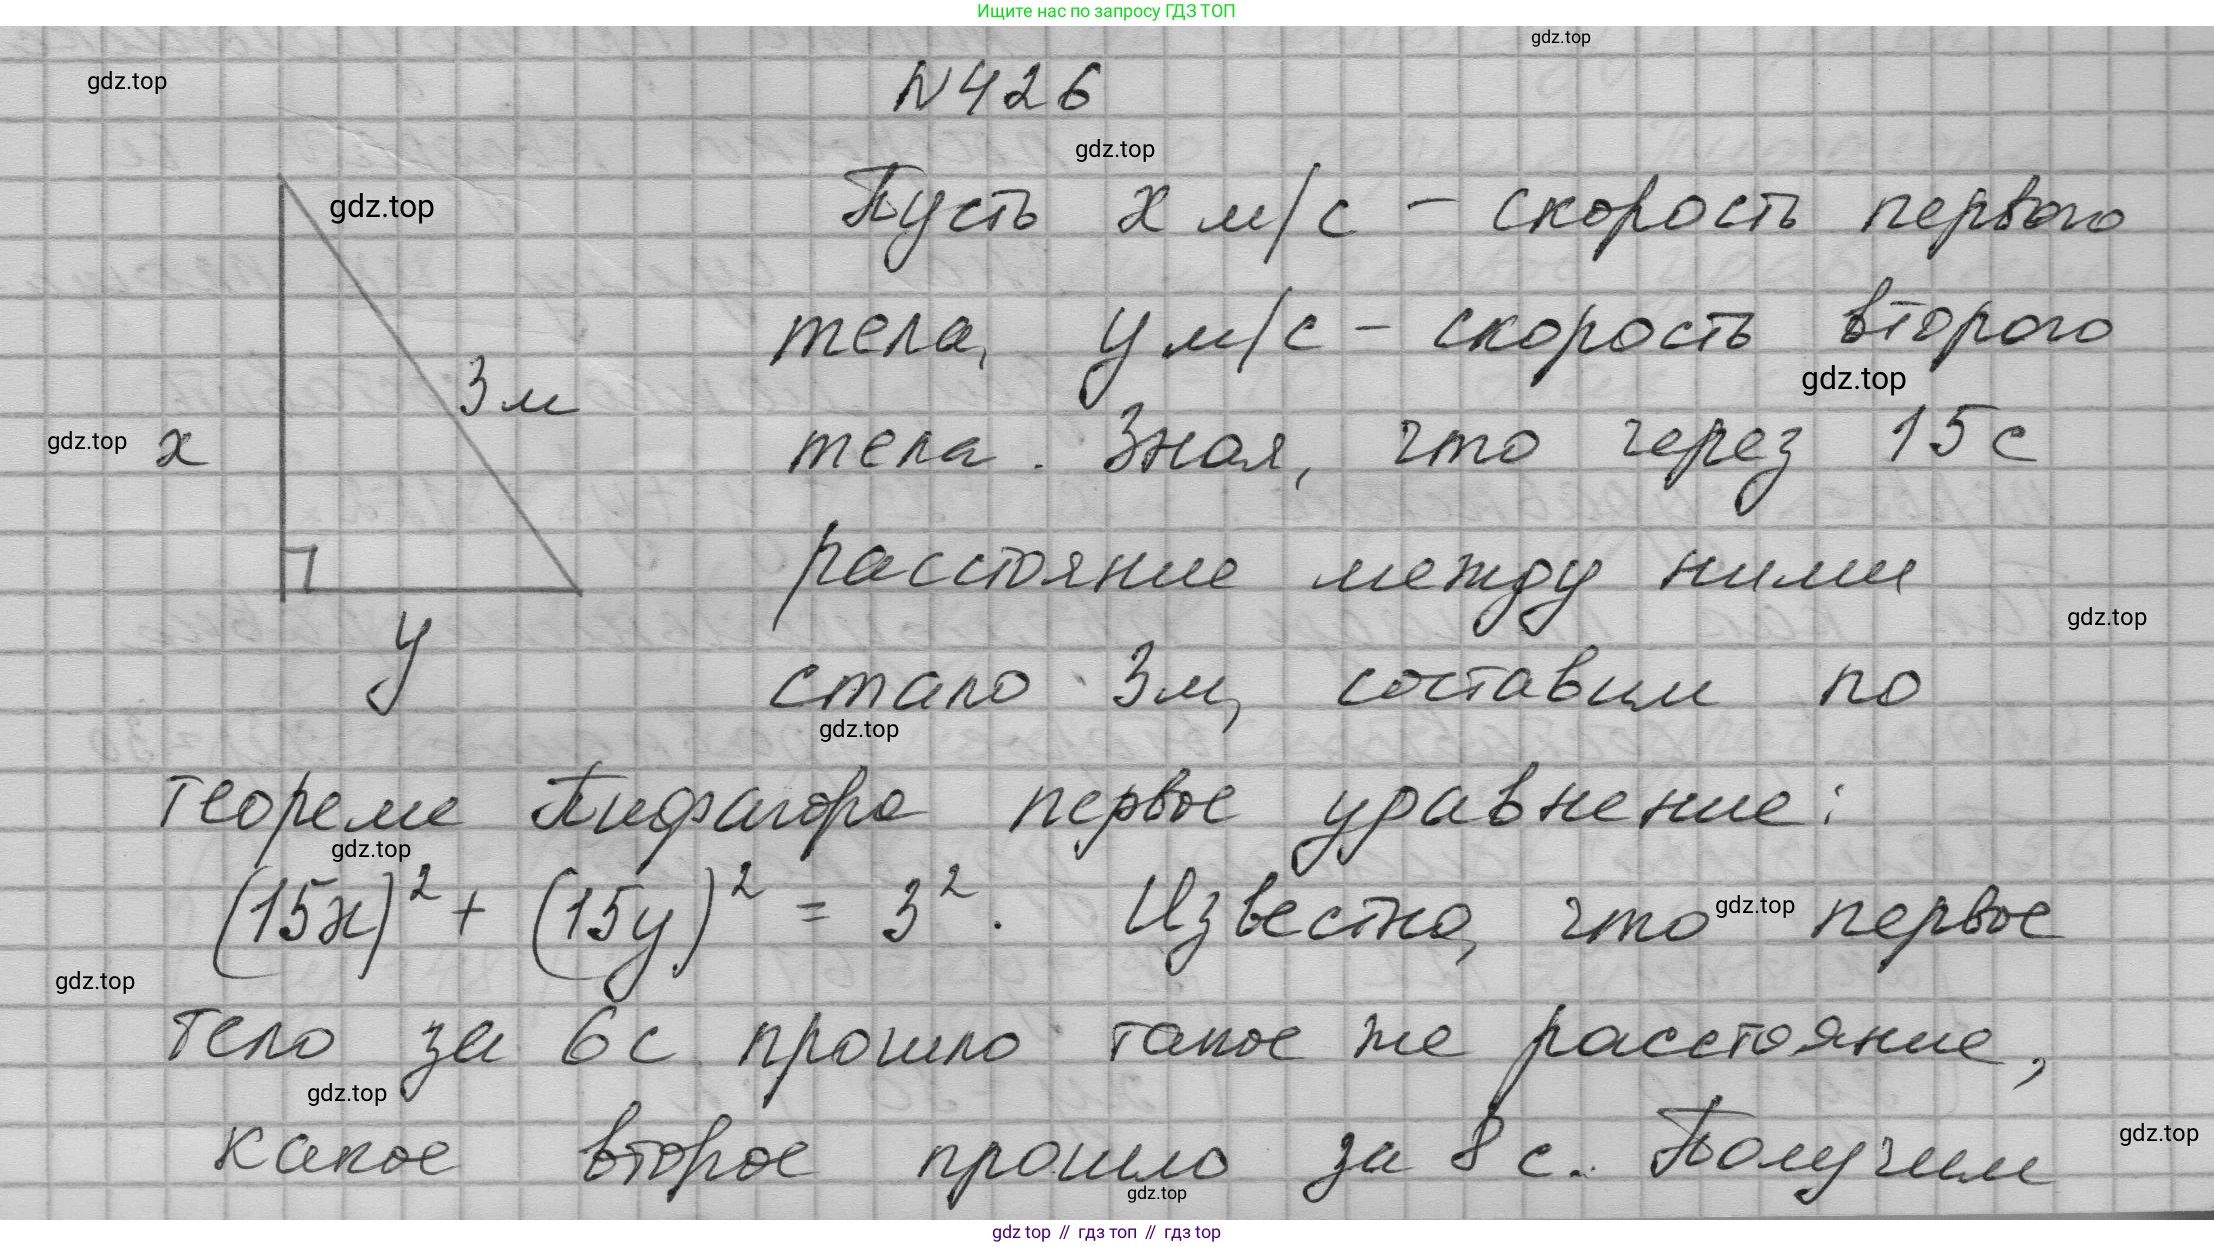 Ищите нас по запросу ГДЗ ТОП
gdz.top
gdz.top
N426
gdz.top
Пусть x м/с – скорость первого
gdz.top
тела, y м/с – скорость второго
gdz.top
3м
gdz.top
x
тела. Зная, что через 15 с
расстояние между ними
gdz.top
y
стало 3м, составим по
gdz.top
теореме Пифагора первое уравнение:
gdz.top
(15x)² + (15y)² = 3². Известно, что первое
gdz.top
gdz.top
тело за 6с прошло такое же расстояние,
gdz.top
какое второе прошло за 8 с. Получим
gdz.top
gdz.top
gdz top // гдз топ // гдз top